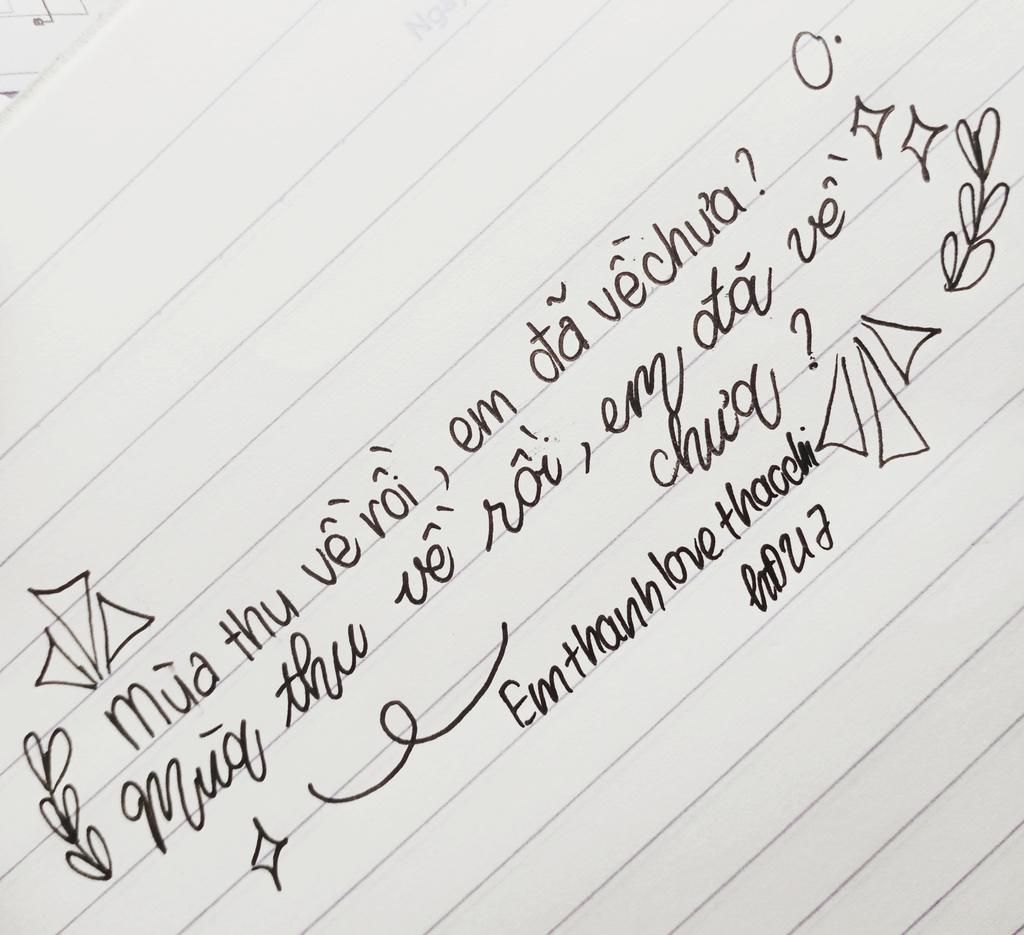 Mùa thu về rồi, em đã về chưa?
Mùa thu về rồi, em đã về
chưa?
Emthanhlovethaochi